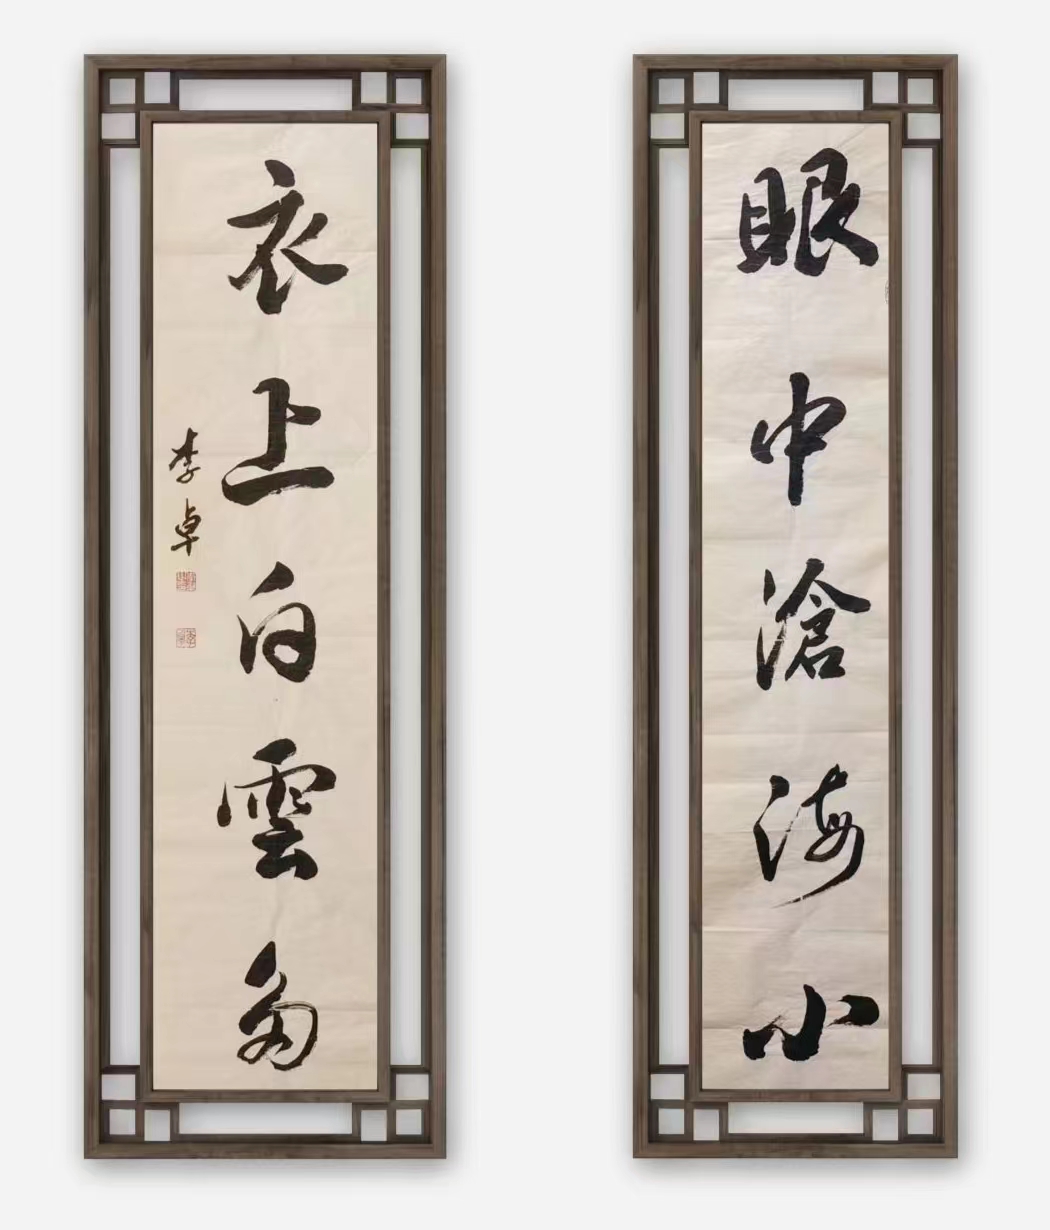 眼中滄海小
衣上白雲多
李卓